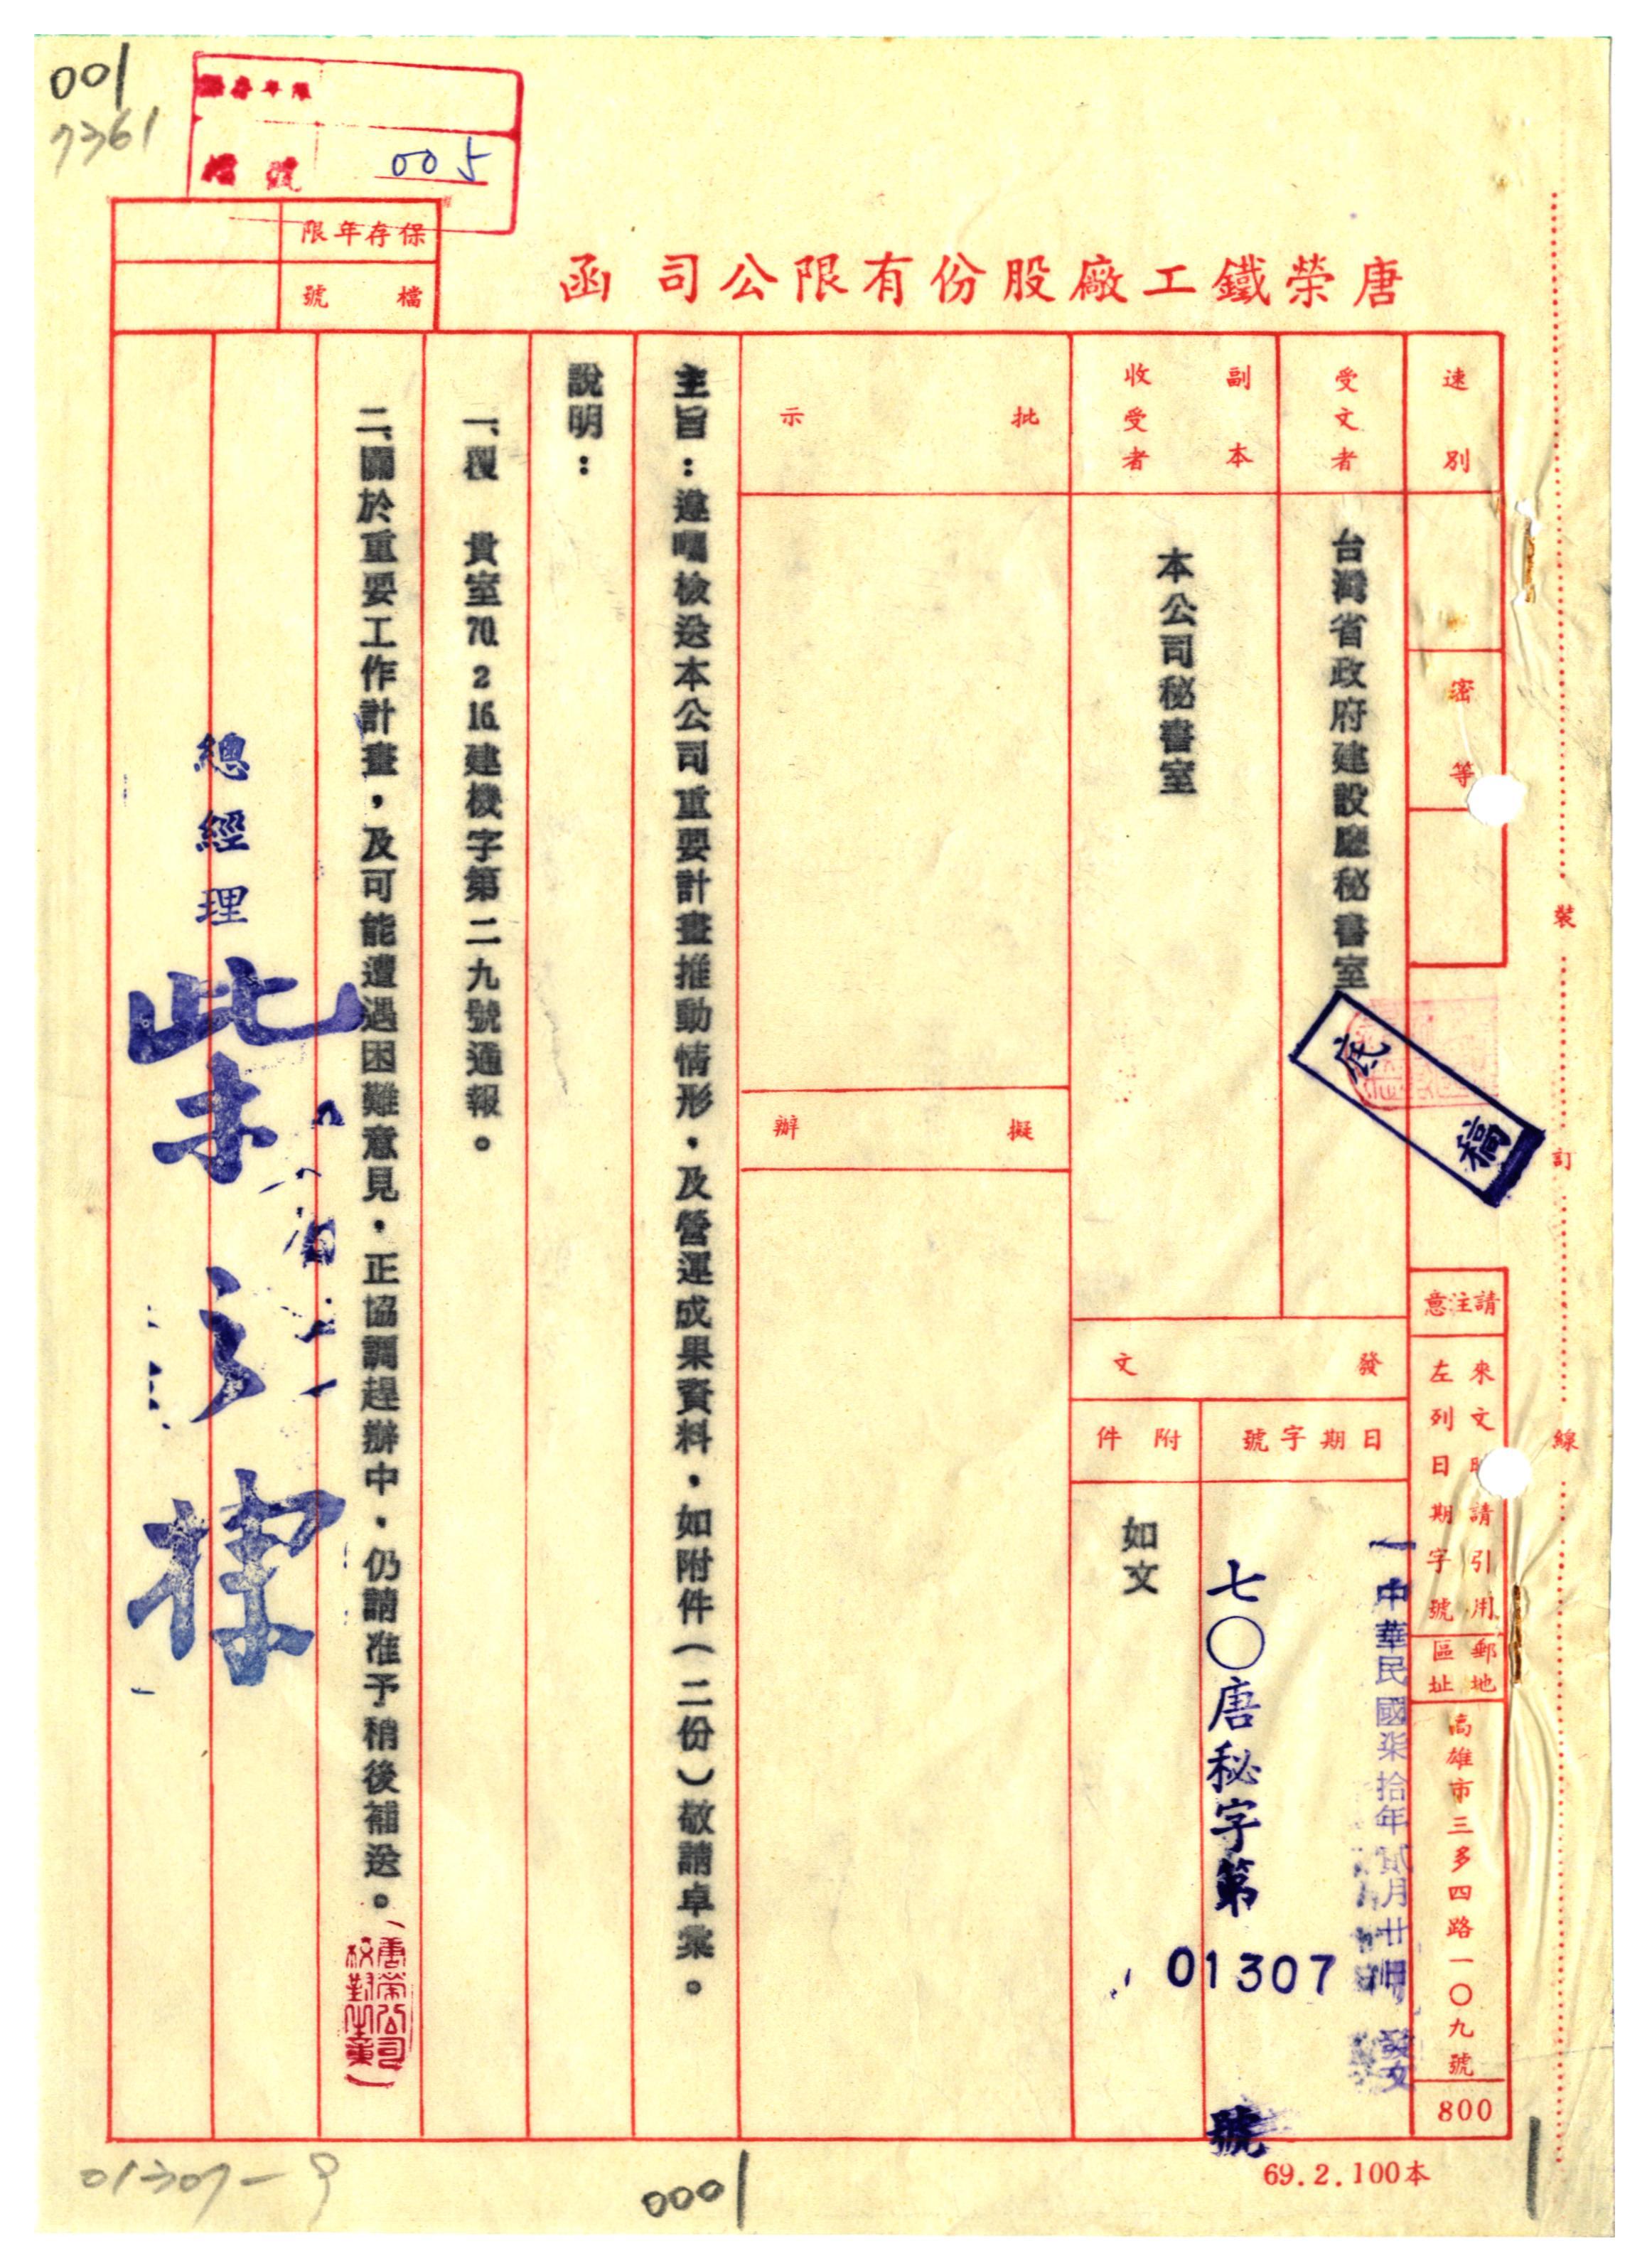 001
7361
檔號
005
保存年限
檔號
唐榮鐵工廠股份有限公司函
速別
密等
受文者
台灣省政府建設廳秘書室
底稿
副本收受者
本公司秘書室
請注意
來文時請引用
左列日期字號
郵地
區址
高雄市三多四路一〇九號
800
發文
日期字號
中華民國柒拾年貳月廿
發文
七〇唐秘字第
01307
號
附件
如文
批示
擬辦
主旨：遵囑檢送本公司重要計畫推動情形，及營運成果資料，如附件（二份）敬請卓察。
說明：
一、覆　貴室70. 2 16.建機字第二九號通報。
二、關於重要工作計畫，及可能遭遇困難意見，正協調趕辦中，仍請准予稍後補送。
唐榮公司
校對之章
總經理
裝
訂
線
69.2.100本
01307-9
0001